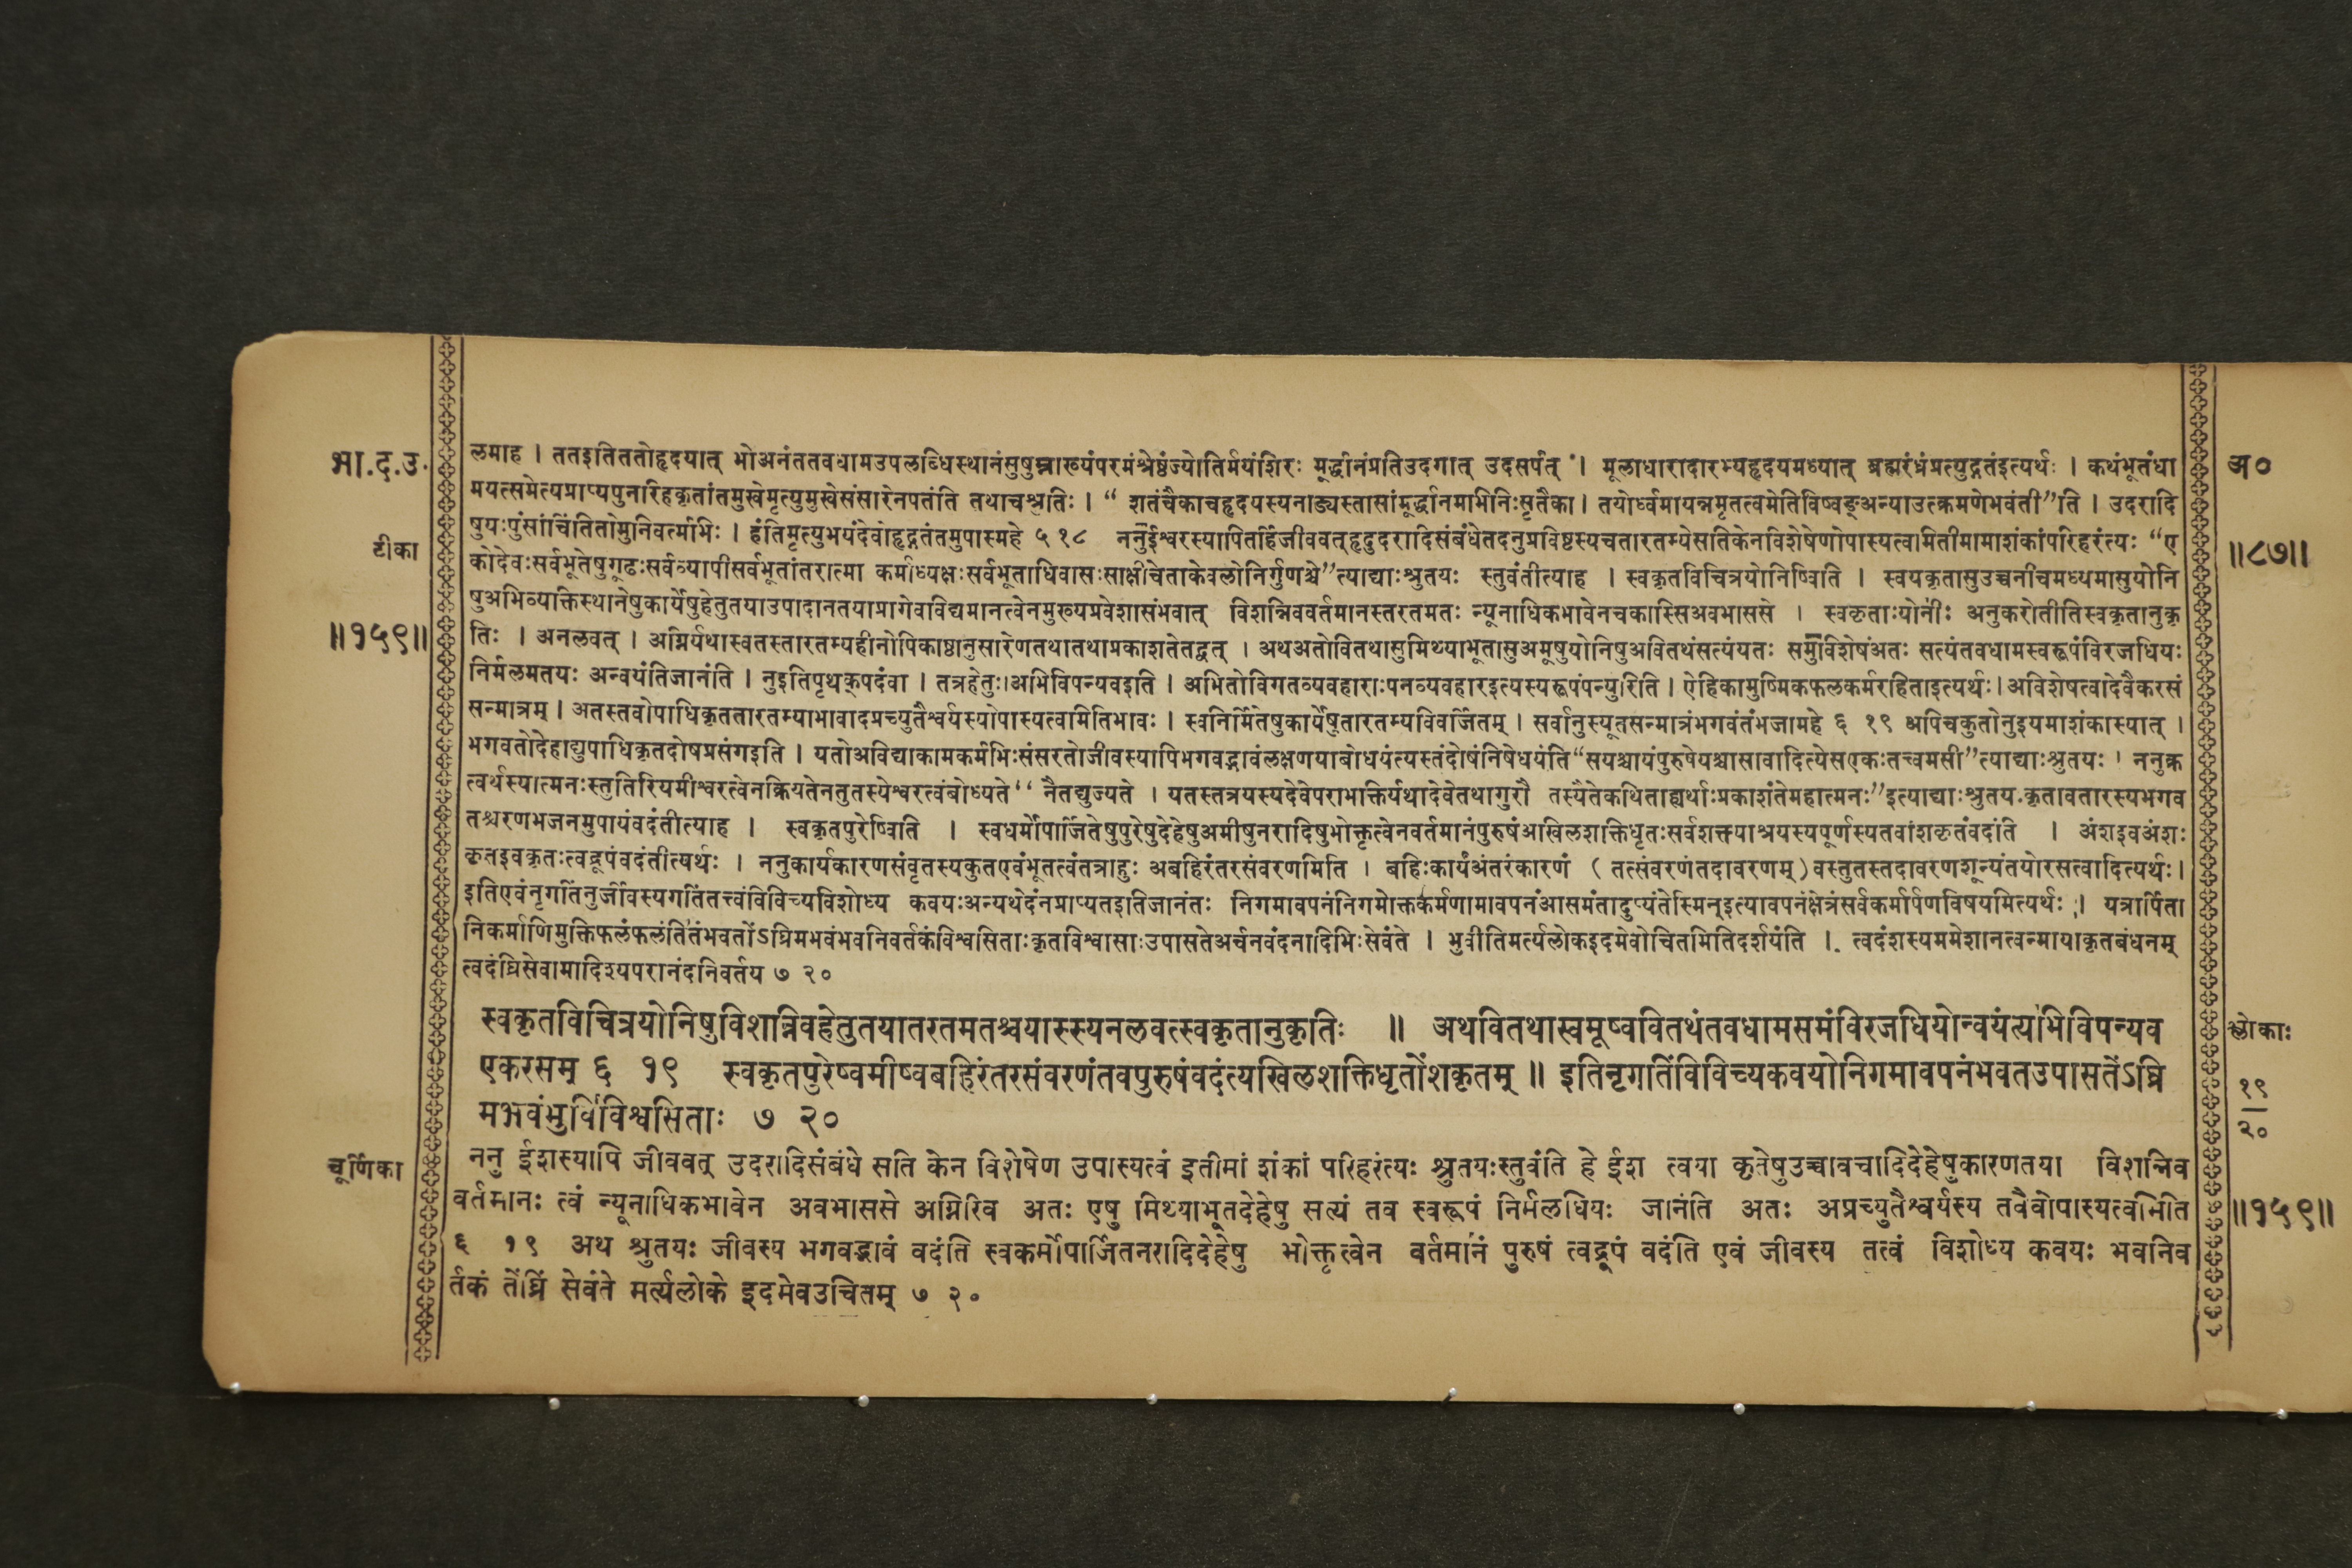 भा.द.उ.
टीका
॥१५९॥
लमाह । ततइतिततोहृदयात् भोअनंततवधामउपलब्धिस्थानंसुषुम्नाख्यंपरमंश्रेष्ठंज्योतिर्मयंशिरः मूर्द्धानंप्रतिउदगात् उदसर्पत् । मूलाधारादारभ्यहृदयमध्यात् ब्रह्मरंध्रंप्रत्युद्गतंइत्यर्थः । कथंभूतंधा
मयत्समेत्यप्राप्यपुनरिहकृतांतमुखेमृत्युमुखेसंसारेनपतंति तथाचश्रुतिः । “ शतंचैकाचहृदयस्यनाड्यस्तासांमूर्द्धानमभिनिःसृतैका । तयोर्ध्वमायन्नमृतत्वमेतिविष्वङ्अन्याउत्क्रमणेभवंती”ति । उदरादि
षुयःपुंसांचिंतितोमुनिवर्त्मभिः । हंतिमृत्युभयंदेवोहृद्गतंतमुपास्महे ५ १८ ननुईश्वरस्यापितर्हिजीववत्हृदुदरादिसंबंधेतदनुप्रविष्टस्यचतारतम्येसतिकेनविशेषेणोपास्यत्वमितीमामाशंकांपरिहरंत्यः “ए
कोदेवःसर्वभूतेषुगूढःसर्वव्यापीसर्वभूतांतरात्मा कर्माध्यक्षःसर्वभूताधिवासःसाक्षीचेताकेवलोनिर्गुणश्चे”त्याद्याःश्रुतयः स्तुवंतीत्याह । स्वकृतविचित्रयोनिष्विति । स्वयकृतासुउच्चनीचमध्यमासुयोनि
षुअभिव्यक्तिस्थानेषुकार्येषुहेतुतयाउपादानतयाप्रागेवविद्यमानत्वेनमुख्यप्रवेशासंभवात् विशन्निववर्तमानस्तरतमतः न्यूनाधिकभावेनचकास्सिअवभाससे । स्वकृताःयोनीः अनुकरोतीतिस्वकृतानुकृ
तिः । अनलवत् । अग्निर्यथास्वतस्तारतम्यहीनोपिकाष्ठानुसारेणतथातथाप्रकाशतेतद्वत् । अथअतोवितथासुमिथ्याभूतासुअमूषुयोनिषुअवितथंसत्यंयतः समंनिर्विशेषंअतः सत्यंतवधामस्वरूपंविरजधियः
निर्मलमतयः अन्वयंतिजानंति । नुइतिपृथक्पदंवा । तत्रहेतुः।अभिविपन्यवइति । अभितोविगतव्यवहाराःपनव्यवहारइत्यस्यरूपंपन्युरिति । ऐहिकामुष्मिकफलकर्मरहिताइत्यर्थः। अविशेषत्वादेवैकरसं
सन्मात्रम् । अतस्तवोपाधिकृततारतम्याभावादप्रच्युतैश्वर्यस्योपास्यत्वमितिभावः । स्वनिर्मितेषुकार्येषुतारतम्यविवर्जितम् । सर्वानुस्यूतसन्मात्रंभगवंतंभजामहे ६ १९ अपिचकुतोनुइयमाशंकास्यात् ।
भगवतोदेहाद्युपाधिकृतदोषप्रसंगइति । यतोअविद्याकामकर्मभिःसंसरतोजीवस्यापिभगवद्भावंलक्षणयाबोधयंत्यस्तंदोषंनिषेधयंति“सयश्चायंपुरुषेयश्चासावादित्येसएकःतत्त्वमसी”त्याद्याःश्रुतयः । ननुक्र
त्वर्थस्यात्मनःस्तुतिरियमीश्वरत्वेनक्रियतेनतुतस्येश्वरत्वंबोध्यते‘‘ नैतद्युज्यते । यतस्तत्रयस्यदेवेपराभक्तिर्यथादेवेतथागुरौ तस्यैतेकथिताह्यर्थाःप्रकाशंतेमहात्मनः”इत्याद्याःश्रुतयःकृतावतारस्यभगव
तश्चरणभजनमुपायंवदंतीत्याह । स्वकृतपुरेष्विति । स्वधर्मोपार्जितेषुपुरेषुदेहेषुअमीषुनरादिषुभोक्तृत्वेनवर्तमानंपुरुषंअखिलशक्तिधृतःसर्वशक्त्याश्रयस्यपूर्णस्यतवांशकृतंवदंति । अंशइवअंशः
कृतइवकृतःत्वद्रूपंवदंतीत्यर्थः । ननुकार्यकारणसंवृतस्यकुतएवंभूतत्वंतत्राहुः अबहिरंतरसंवरणमिति । बहिःकार्यंअंतरंकारणं ( तत्संवरणंतदावरणम्)वस्तुतस्तदावरणशून्यंतयोरसत्वादित्यर्थः।
इतिएवंनृगतिंनुर्जीवस्यगतिंतत्त्वंविविच्यविशोध्य कवयःअन्यथेदंनप्राप्यतइतिजानंतः निगमावपनंनिगमोक्तकर्मणामावपनंआसमंतादुप्यंतेस्मिन्इत्यावपनंक्षेत्रंसर्वकर्मार्पणविषयमित्यर्थः । यत्रार्पिता
निकर्माणिमुक्तिफलंफलंतितंभवतोंऽघ्रिमभवंभवनिवर्तकंविश्वसिताःकृतविश्वासाःउपासतेअर्चनवंदनादिभिःसेवंते । भुवीतिमर्त्यलोकइदमेवोचितमितिदर्शयंति । त्वदंशस्यममेशानत्वन्मायाकृतबंधनम्
त्वदंघ्रिसेवामादिश्यपरानंदनिवर्तय ७ २०
स्वकृतविचित्रयोनिषुविशन्निवहेतुतयातरतमतश्चयास्स्यनलवत्स्वकृतानुकृतिः ॥ अथवितथास्वमूष्ववितथंतवधामसमंविरजधियोन्वयंत्यभिविपन्यव
एकरसम् ६ १९ स्वकृतपुरेष्वमीष्वबहिरंतरसंवरणंतवपुरुषंवदंत्यखिलशक्तिधृतोंशकृतम् ॥ इतिनृगतिंविविच्यकवयोनिगमावपनंभवतउपासतेंऽघ्रि
मभवंभुविविश्वसिताः ७ २०
चूर्णिका
ननु ईशस्यापि जीववत् उदरादिसंबंधे सति केन विशेषेण उपास्यत्वं इतीमां शंकां परिहरंत्यः श्रुतयःस्तुवंति हे ईश त्वया कृतेषुउच्चावचादिदेहेषुकारणतया विशन्निव
वर्तमानः त्वं न्यूनाधिकभावेन अवभाससे अग्निरिव अतः एषु मिथ्याभूतदेहेषु सत्यं तव स्वरूपं निर्मलधियः जानंति अतः अप्रच्युतैश्वर्यस्य तवैवोपास्यत्वमिति
६ १९ अथ श्रुतयः जीवस्य भगवद्भावं वदंति स्वकर्मोपार्जितनरादिदेहेषु भोक्तृत्वेन वर्तमानं पुरुषं त्वद्रूपं वदंति एवं जीवस्य तत्वं विशोध्य कवयः भवनिव
र्तकं तेंघ्रिं सेवंते मर्त्यलोके इदमेवउचितम् ७ २०
अ०
॥८७॥
श्लोकाः
१९
२०
॥१५९॥